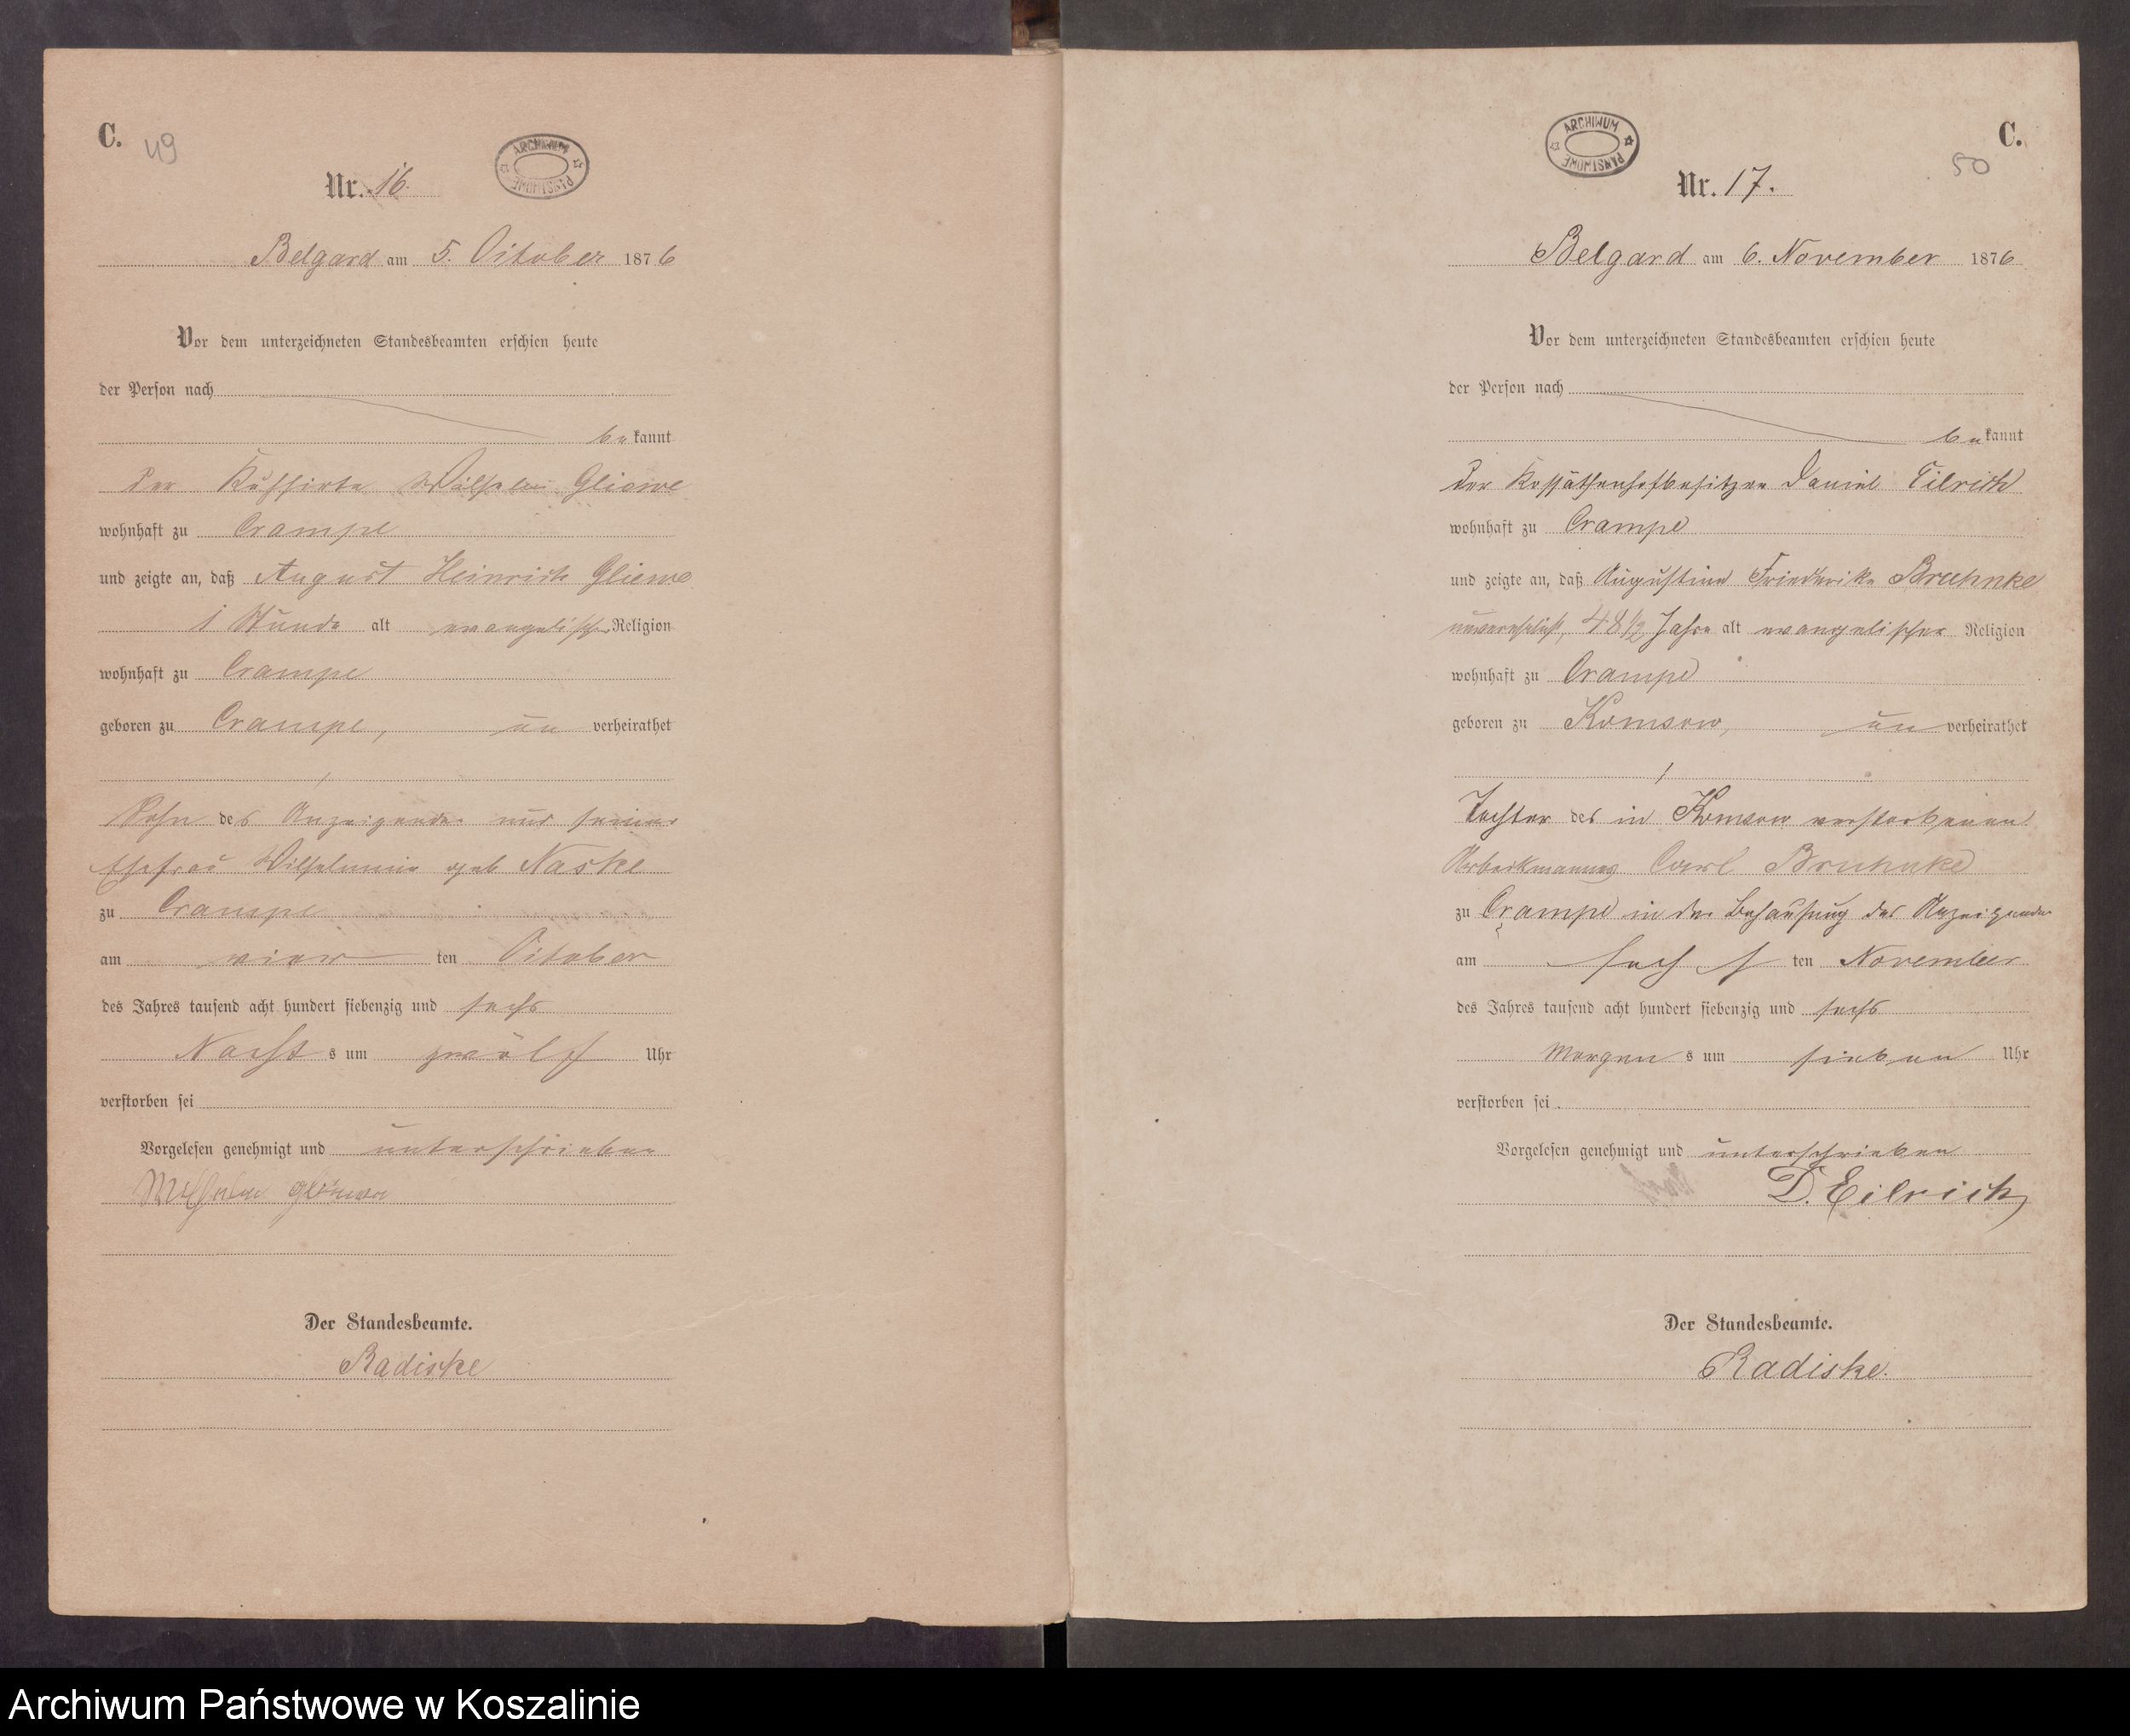 C. 49
ARCHIWUM PAŃSTWOWE
Nr. 16.
Belgard am 5. October 1876
Vor dem unterzeichneten Standesbeamten erschien heute
der Person nach
bekannt
der Kuhhirte Wilhelm Gliewe
wohnhaft zu Crampe
und zeigte an, daß August Heinrich Gliewe
1 Stunde alt evangelischer Religion
wohnhaft zu Crampe
geboren zu Crampe, un verheirathet
/
Sohn des Anzeigenden und seiner
Ehefrau Wilhelmine geb Naske
zu Crampe
am vier ten October
des Jahres tausend acht hundert siebenzig und sechs
Nacht s um zwölf Uhr
verstorben sei
Vorgelesen genehmigt und unterschrieben
Wilhelm Gliewe
Der Standesbeamte.
Radiske
C.
50
ARCHIWUM PAŃSTWOWE
Nr. 17.
Belgard am 6. November 1876
Vor dem unterzeichneten Standesbeamten erschien heute
der Person nach
bekannt
der Kossäthenhofbesitzer Daniel Eilrich
wohnhaft zu Crampe
und zeigte an, daß Augustine Friederike Bruhnke
unverehelicht, 48 1/2 Jahre alt evangelischer Religion
wohnhaft zu Crampe
geboren zu Komsow, un verheirathet
/
Tochter des in Komsow verstorbenen
Arbeitmannes Carl Bruhnke
zu Crampe in der Behausung des Anzeigenden
am sechs ten November
des Jahres tausend acht hundert siebenzig und sechs
Morgen s um sieben Uhr
verstorben sei.
Vorgelesen genehmigt und unterschrieben
D. Eilrich
Der Standesbeamte.
Radiske.
Archiwum Państwowe w Koszalinie